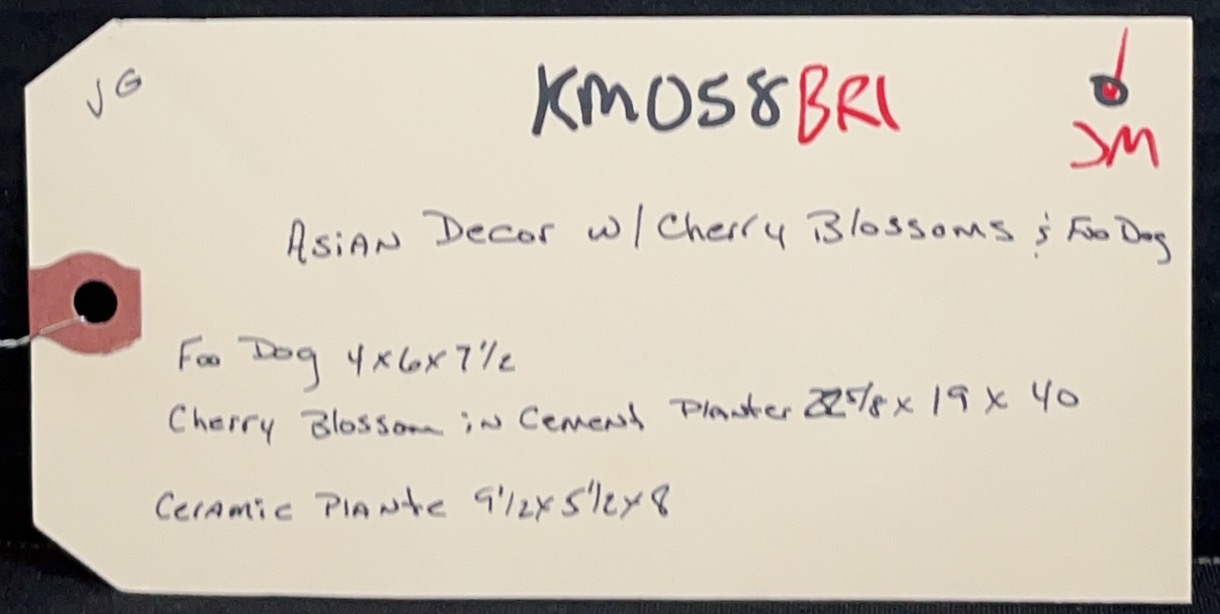 JG
KM058BR1
JM
Asian Decor w/ Cherry Blossoms & Foo Dog
Foo Dog 4x6x7 1/2
Cherry Blossom in Cement Planter 22 5/8 x 19 x 40
Ceramic Plante 9 1/2 x 5 1/2 x 8